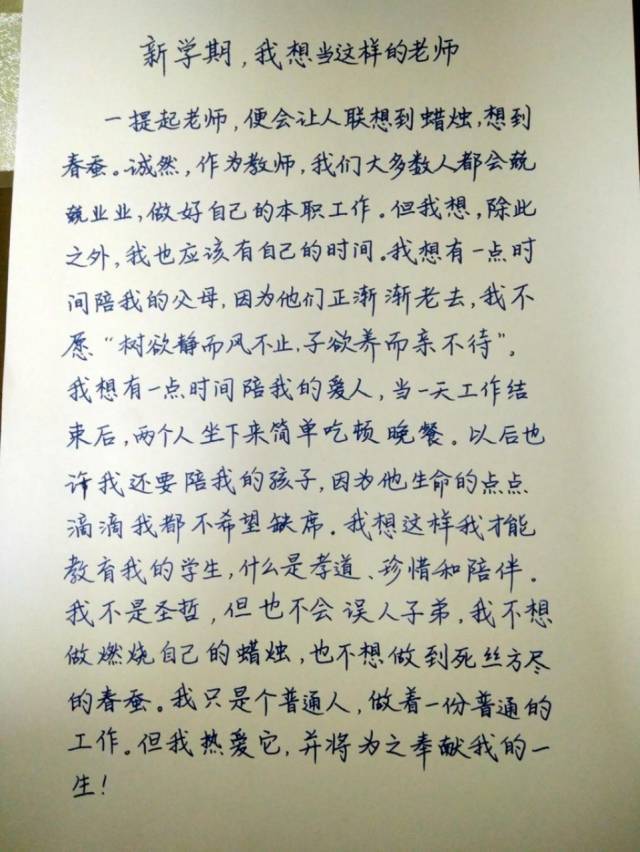 新学期，我想当这样的老师
一提起老师，便会让人联想到蜡烛，想到
春蚕。诚然，作为教师，我们大多数人都会兢
兢业业，做好自己的本职工作。但我想，除此
之外，我也应该有自己的时间。我想有一点时
间陪我的父母，因为他们正渐渐老去，我不
愿“树欲静而风不止，子欲养而亲不待”。
我想有一点时间陪我的爱人，当一天工作结
束后，两个人坐下来简单吃顿晚餐。以后也
许我还要陪我的孩子，因为他生命的点点
滴滴我都不希望缺席。我想这样我才能
教育我的学生，什么是孝道、珍惜和陪伴。
我不是圣哲，但也不会误人子弟，我不想
做燃烧自己的蜡烛，也不想做到死丝方尽
的春蚕。我只是个普通人，做着一份普通的
工作。但我热爱它，并将为之奉献我的一
生！